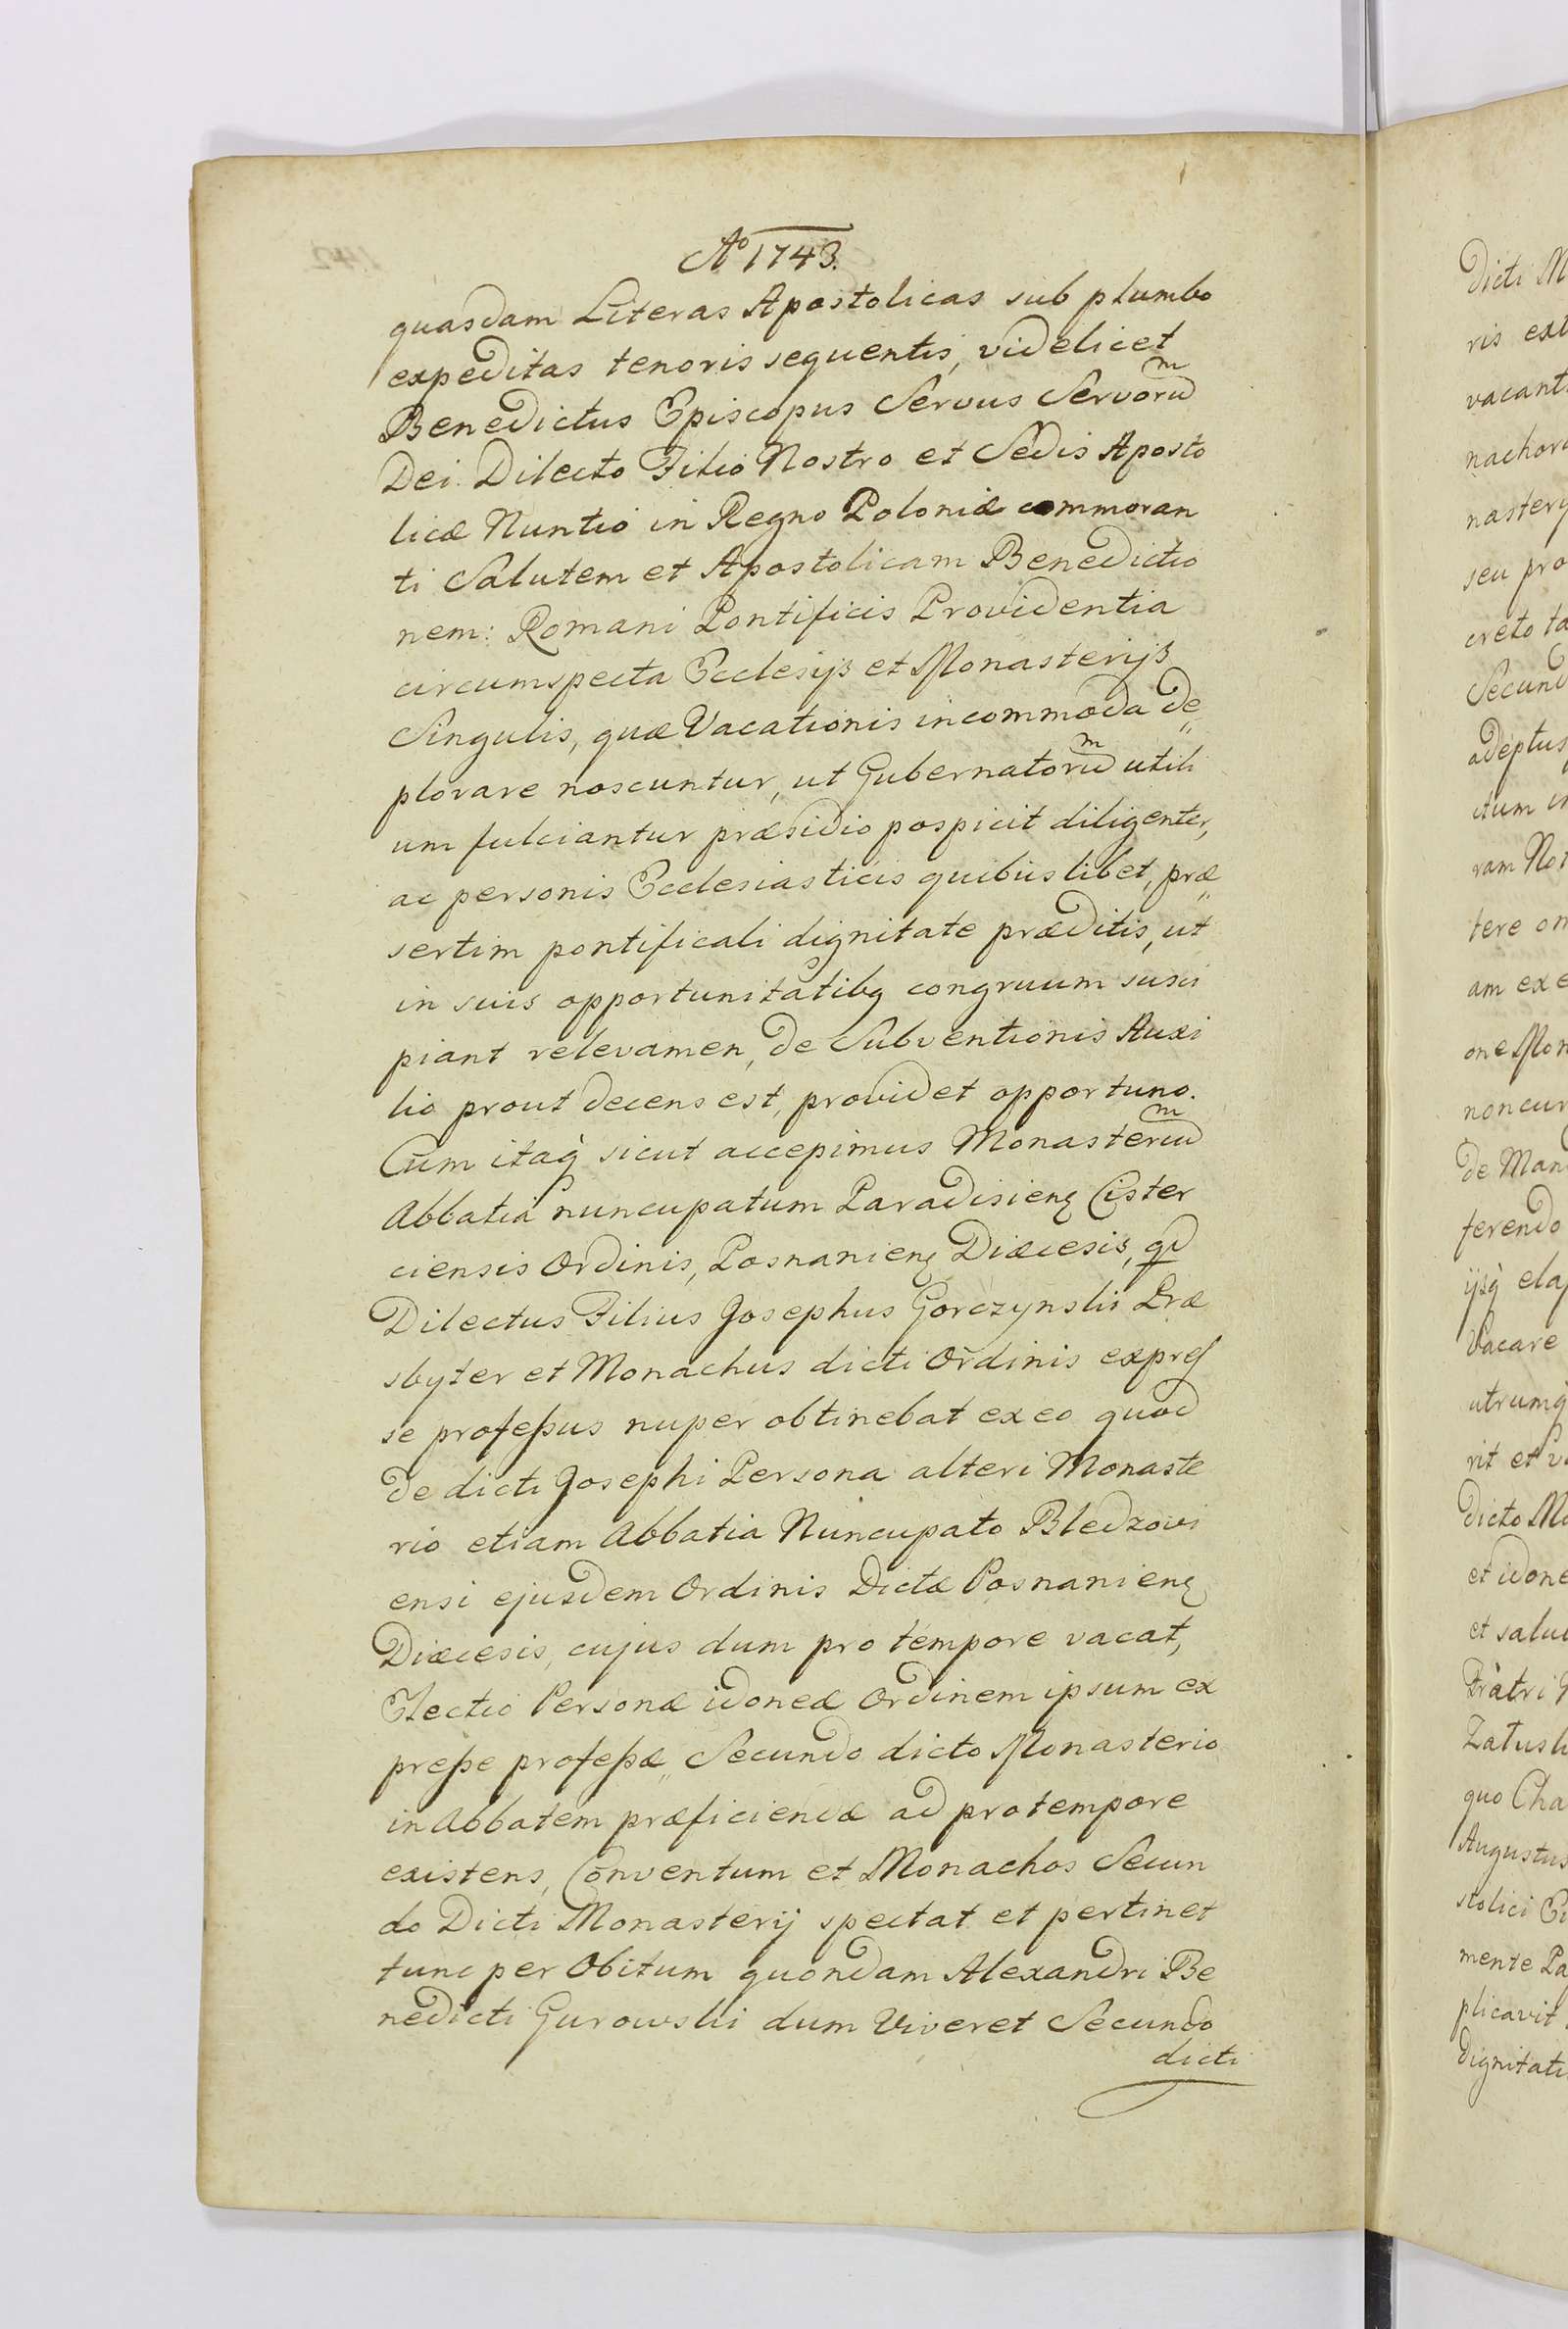 Aº 1743.
quasdam Literas Apostolicas sub plumbo
expeditas tenoris sequentis, videlicet
Benedictus Episcopus Servus Servorum
Dei Dilecto Filio Nostro et Sedis Aposto
licæ Nuntio in Regno Poloniæ commoran
ti Salutem et Apostolicam Benedictio
nem: Romani Pontificis Providentia
circumspecta Ecclesijs et Monasterijs
Singulis, quæ Vacationis incommoda de„
plorare noscuntur, ut Gubernatorum utili
um fulciantur præsidio pospicit diligenter,
ac personis Ecclesiasticis quibus libet, præ„
sertim pontificali dignitate præditis, ut
in suis opportunitatibq congruum susci
piant relevamen, de Subventionis Auxi
lio prout decens est, providet opportuno.
Cum itaq̀ sicut accepimus Monasterium
Abbatia nuncupatum Paradisienȩ Cister
ciensis Ordinis, Posnanienȩ Diæcesis, qd
Dilectus Filius Josephus Gorczynski Præ
sbyter et Monachus dicti Ordinis expres
se profeſsus nuper obtinebat ex eo quod
de dicti Josephi Persona alteri Monaste
rio etiam Abbatia Nuncupato Bledzovi
ensi ejusdem Ordinis Dictæ Posnanienȩ
Diæcesis, cujus dum pro tempore vacat,
Electio Personæ idoneæ Ordinem ipsum ex
preſse profeſsæ„ Secundo dicto Monasterio
in Abbatem præficiendæ ad pro tempore
existens, Conventum et Monachos Secun
do Dicti Monasterij spectat et pertinet
tunc per Obitum quondam Alexandri Be
nedicti Gurowski dum Viveret Secundo
dicti
dicti M
ris ext
vacant
nachor
nastery
seu pro
creto ta
Secund
adeptus
ctum in
ram No
tere om
am exe
one Mon
noncu
de Man
ferendo
ijsq̀ ela
Vacare
utrumq̀
rit et v
dicto M
et idone
et salu
Fratri
Zalusk
quo Cha
Augustus
stolici
mente Pa
plicavit
dignitati